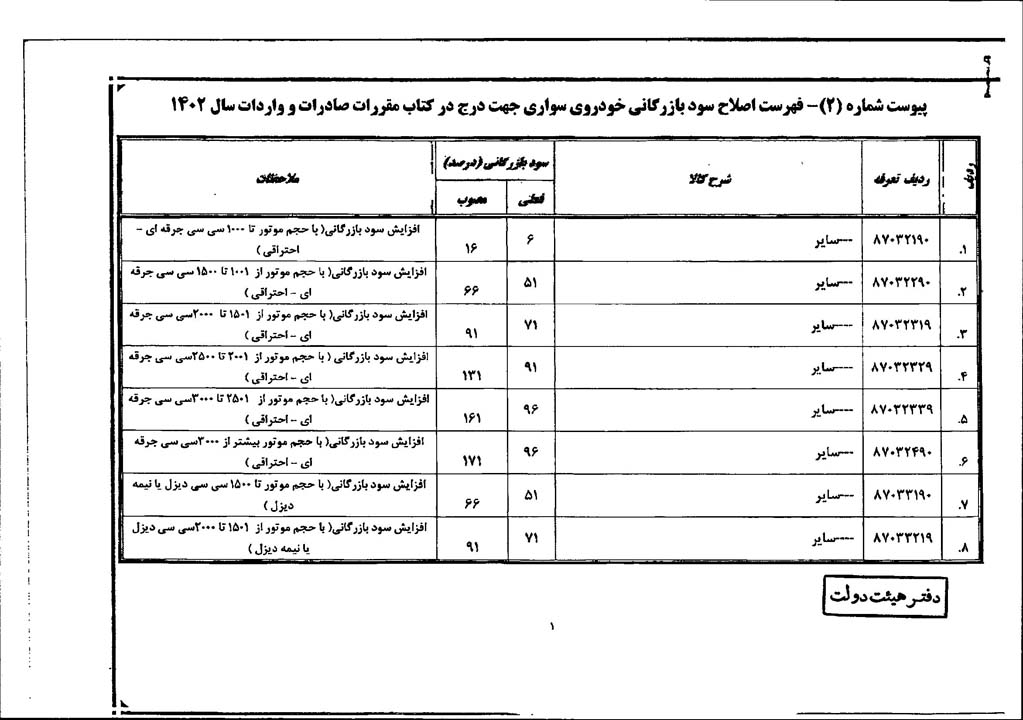 پیوست شماره (۲)- فهرست اصلاح سود بازرگانی خودروی سواری جهت درج در کتاب مقررات صادرات و واردات سال ۱۴۰۲
ردیف ردیف تعرفه شرح کالا سود بازرگانی (درصد) ملاحظات
فعلی مصوب
۱. ۸۷۰۳۲۱۹۰ ---سایر ۶ ۱۶ افزایش سود بازرگانی( با حجم موتور تا ۱۰۰۰ سی سی جرقه ای -
احتراقی )
۲. ۸۷۰۳۲۲۹۰ ---سایر ۵۱ ۶۶ افزایش سود بازرگانی( با حجم موتور از ۱۰۰۱ تا ۱۵۰۰ سی سی جرقه
ای - احتراقی )
۳. ۸۷۰۳۲۳۱۹ ----سایر ۷۱ ۹۱ افزایش سود بازرگانی( با حجم موتور از ۱۵۰۱ تا ۲۰۰۰سی سی جرقه
ای - احتراقی )
۴. ۸۷۰۳۲۳۲۹ ----سایر ۹۱ ۱۳۱ افزایش سود بازرگانی ( با حجم موتور از ۲۰۰۱ تا ۲۵۰۰سی سی جرقه
ای - احتراقی )
۵. ۸۷۰۳۲۳۳۹ ----سایر ۹۶ ۱۶۱ افزایش سود بازرگانی( با حجم موتور از ۲۵۰۱ تا ۳۰۰۰سی سی جرقه
ای - احتراقی )
۶. ۸۷۰۳۲۴۹۰ ---سایر ۹۶ ۱۷۱ افزایش سود بازرگانی( با حجم موتور بیشتر از ۳۰۰۰سی سی جرقه
ای - احتراقی )
۷. ۸۷۰۳۳۱۹۰ ---سایر ۵۱ ۶۶ افزایش سود بازرگانی( با حجم موتور تا ۱۵۰۰ سی سی دیزل یا نیمه
دیزل )
۸. ۸۷۰۳۳۲۱۹ ----سایر ۷۱ ۹۱ افزایش سود بازرگانی( با حجم موتور از ۱۵۰۱ تا ۲۰۰۰سی سی دیزل
یا نیمه دیزل )
دفتر هیئت دولت
۱